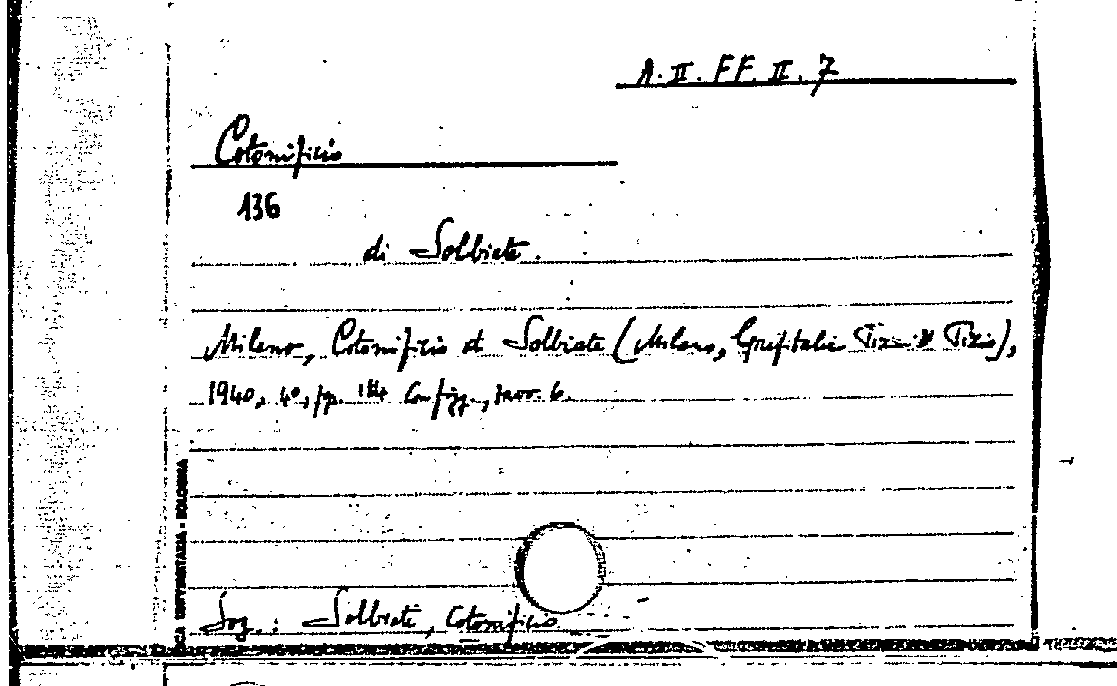 A. II. FF. II. 7
Cotonificio
136
di Solbiate.
Milano, Cotonificio di Solbiate (Milano, Grafitalia Pizzi & Pizio),
1940, 4º, pp. 184 con figg., tavv. 6.
Sog.: Solbiate, Cotonificio
CA UNIVERSITARIA - BOLOGNA